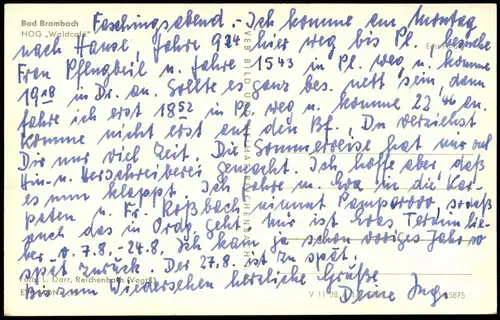 Bad Brambach
HOG "Waldcafé"
Faschingsabend. Ich komme am Montag
nach Hause, fahre 9 34 hier weg bis Pl. besuche
Frau Pflugbeil u. fahre 15 43 in Pl. weg u. komme
19 18 in Dr. an. Sollte es ganz bes. nett sein, dann
fahre ich erst 18 52 in Pl. weg u. komme 22 46 an.
Komme nicht erst auf den Bf., Du verziehst
Dir nur viel Zeit. Die Sommerreise hat nur viel
Hin- u. Herschreiberei gemacht. Ich hoffe aber, daß
es nun klappt. Ich fahre u. Eva in die Kar-
paten u. Fr. Roßbach nimmt Pamporovo, sodaß
auch das in Ordg. geht. Mir ist Evas Termin lie-
ber v. 7.8. - 24.8. Ich kam ja schon voriges Jahr so
spät zurück. Der 27.8. ist zu spät.
Bis zum Wiedersehen herzliche Grüße
Deine Ing.
VEB BILD UND HEIMAT REICHENBACH
Foto: L. Darr, Reichenbach (Vogtl.)
V 11 28
5875